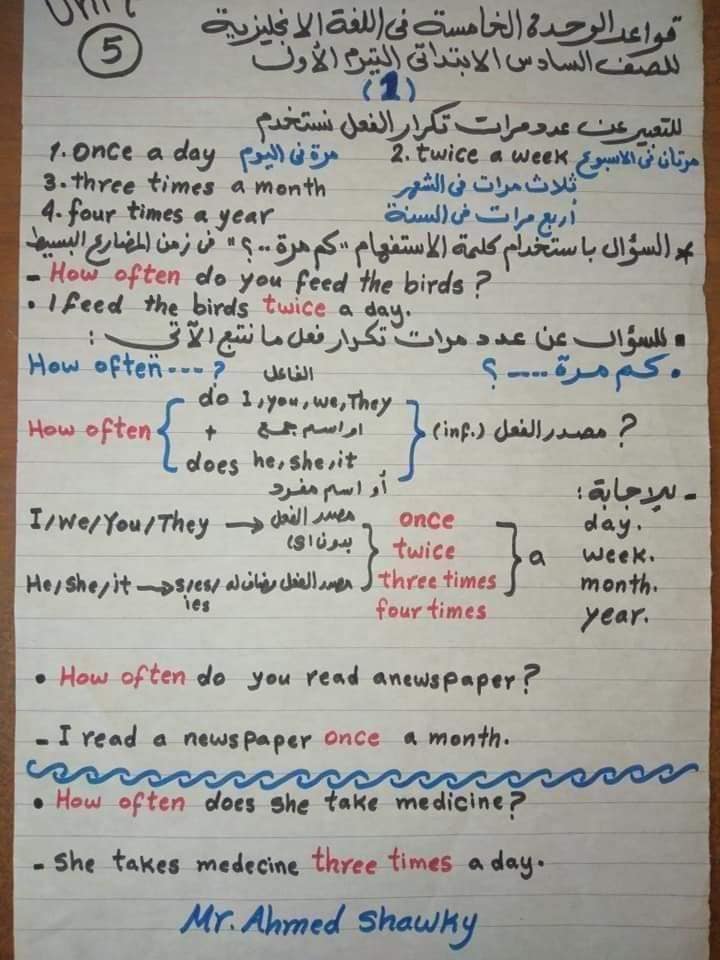 Unit
5
قواعد الوحدة الخامسة فى اللغة الإنجليزية
للصف السادس الابتدائى التيرم الأول
(1)
للتعبير عن عدد مرات تكرار الفعل نستخدم
1. once a day مرة فى اليوم 2. twice a week مرتان فى الاسبوع
3. three times a month ثلاث مرات فى الشهر
4. four times a year أربع مرات فى السنة
* السؤال باستخدام كلمة الاستفهام "كم مرة ..؟" فى زمن المضارع البسيط
- How often do you feed the birds?
• I feed the birds twice a day.
▪ للسؤال عن عدد مرات تكرار فعل ما نتبع الآتى :
• كم مرة ....؟ How often ---?
الفاعل
do I, you, we, They
How often { + او اسم جمع } مصدر الفعل (inf.) ?
does he, she, it
أو اسم مفرد
- للإجابة :
I/We/You/They → مصدر الفعل once day.
بدون (s) twice } a week.
He, She, it → مصدر الفعل مضاف له s/es/ three times month.
ies four times year.
• How often do you read anewspaper?
- I read a newspaper once a month.
• How often does she take medicine?
- She takes medecine three times a day.
Mr. Ahmed Shawky